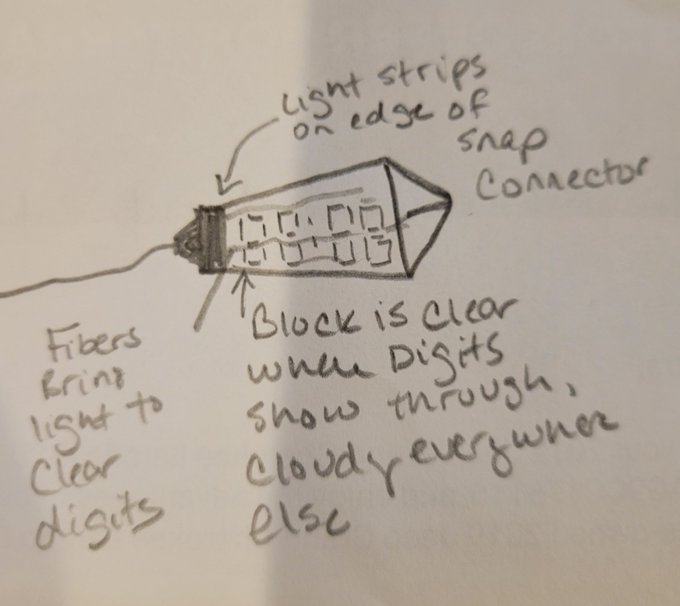 Light strips
on edge of
snap
Connector
Fibers
Bring
light to
Clear
digits
Block is clear
when Digits
show through,
cloudy everywhere
else